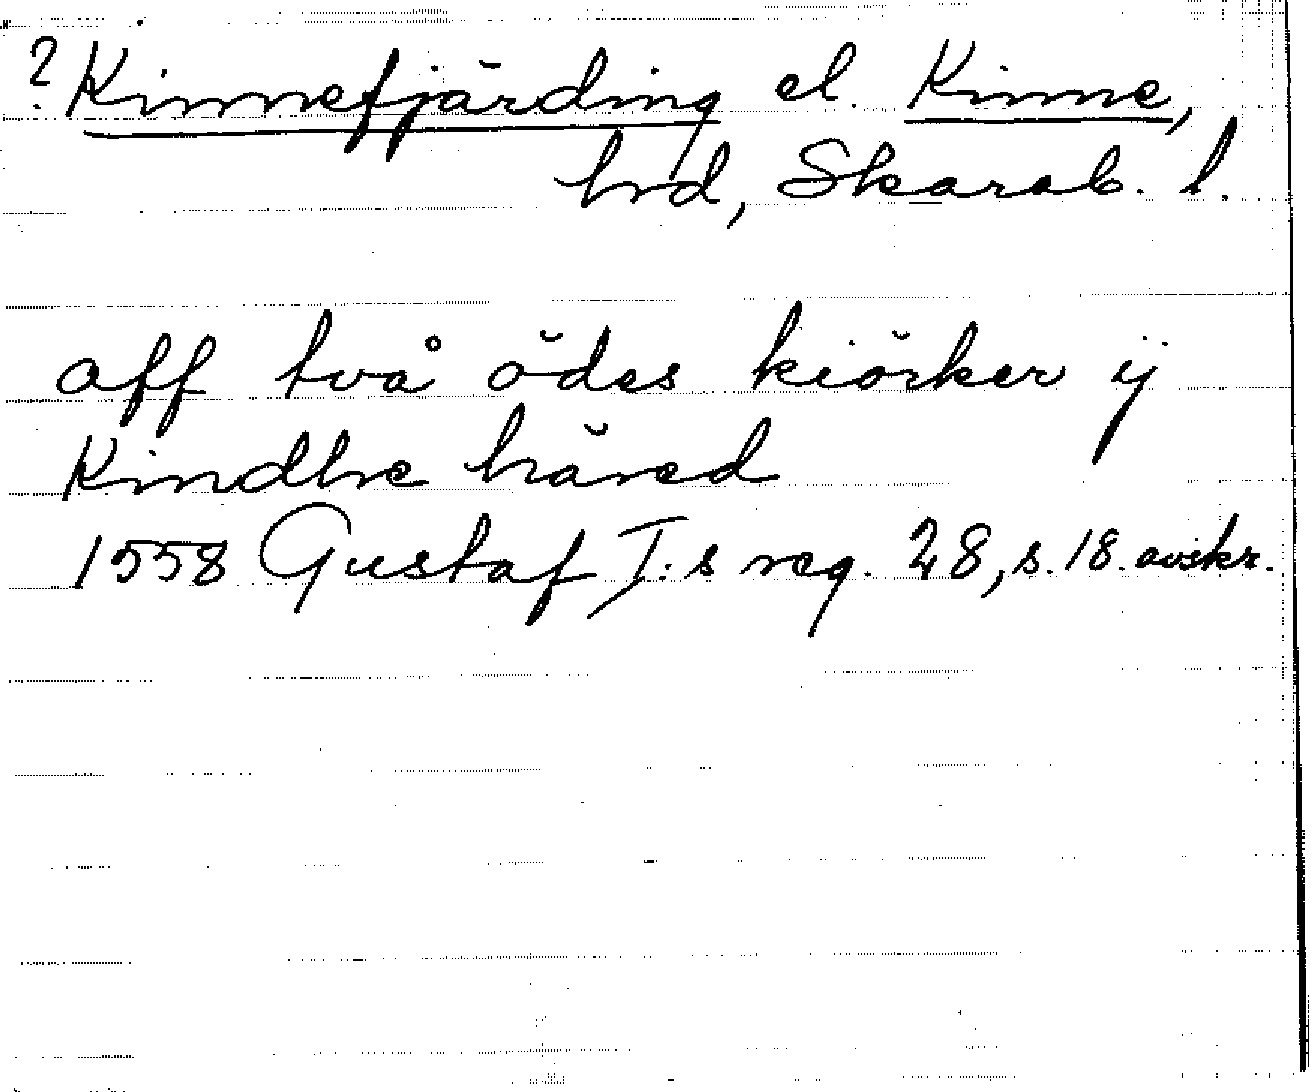 ? Kinnefjärding el. Kinne,
hrd, Skarab. l.
aff två ödes kiörker ÿ
Kindhe häred
1558 Gustaf I:s reg. 28, s. 18. avskr.